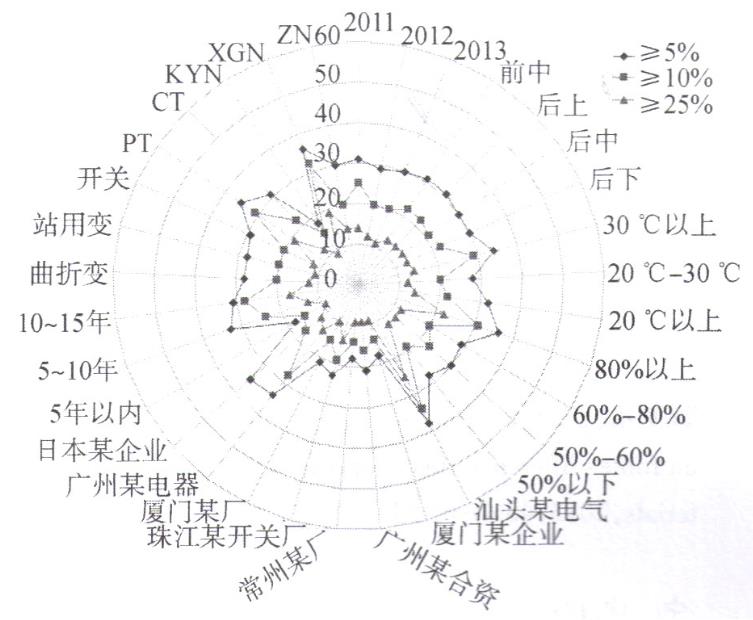 2011
2012
2013
前中
后上
后中
后下
30 ℃以上
20 ℃-30 ℃
20 ℃以上
80%以上
60%-80%
50%-60%
50%以下
汕头某电气
厦门某企业
广州某合资
常州某厂
珠江某开关厂
厦门某厂
广州某电器
日本某企业
5年以内
5~10年
10~15年
曲折变
站用变
开关
PT
CT
KYN
XGN
ZN
60
50
40
30
20
10
0
≥5%
≥10%
≥25%